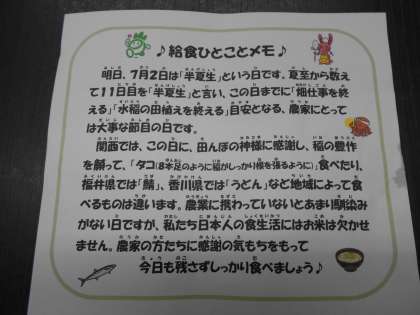 ♪給食ひとことメモ♪
明日、7月2日は「半夏生」という日です。夏至から数え
て11日目を「半夏生」と言い、この日までに「畑仕事を終
える」「水稲の田植えを終える」目安となる、農家にとって
は大事な節目の日です。
関西では、この日に、田んぼの神様に感謝し、稲の豊作
を願って、「タコ(8本足のように稲がしっかり根を張るように)」食べたり、
福井県では「鯖」、香川県では「うどん」など地域によって食
べるものは違います。農業に携わっていないとあまり馴染み
がない日ですが、私たち日本人の食生活にはお米は欠かせ
ません。農家の方たちに感謝の気もちをもって
今日も残さずしっかり食べましょう♪